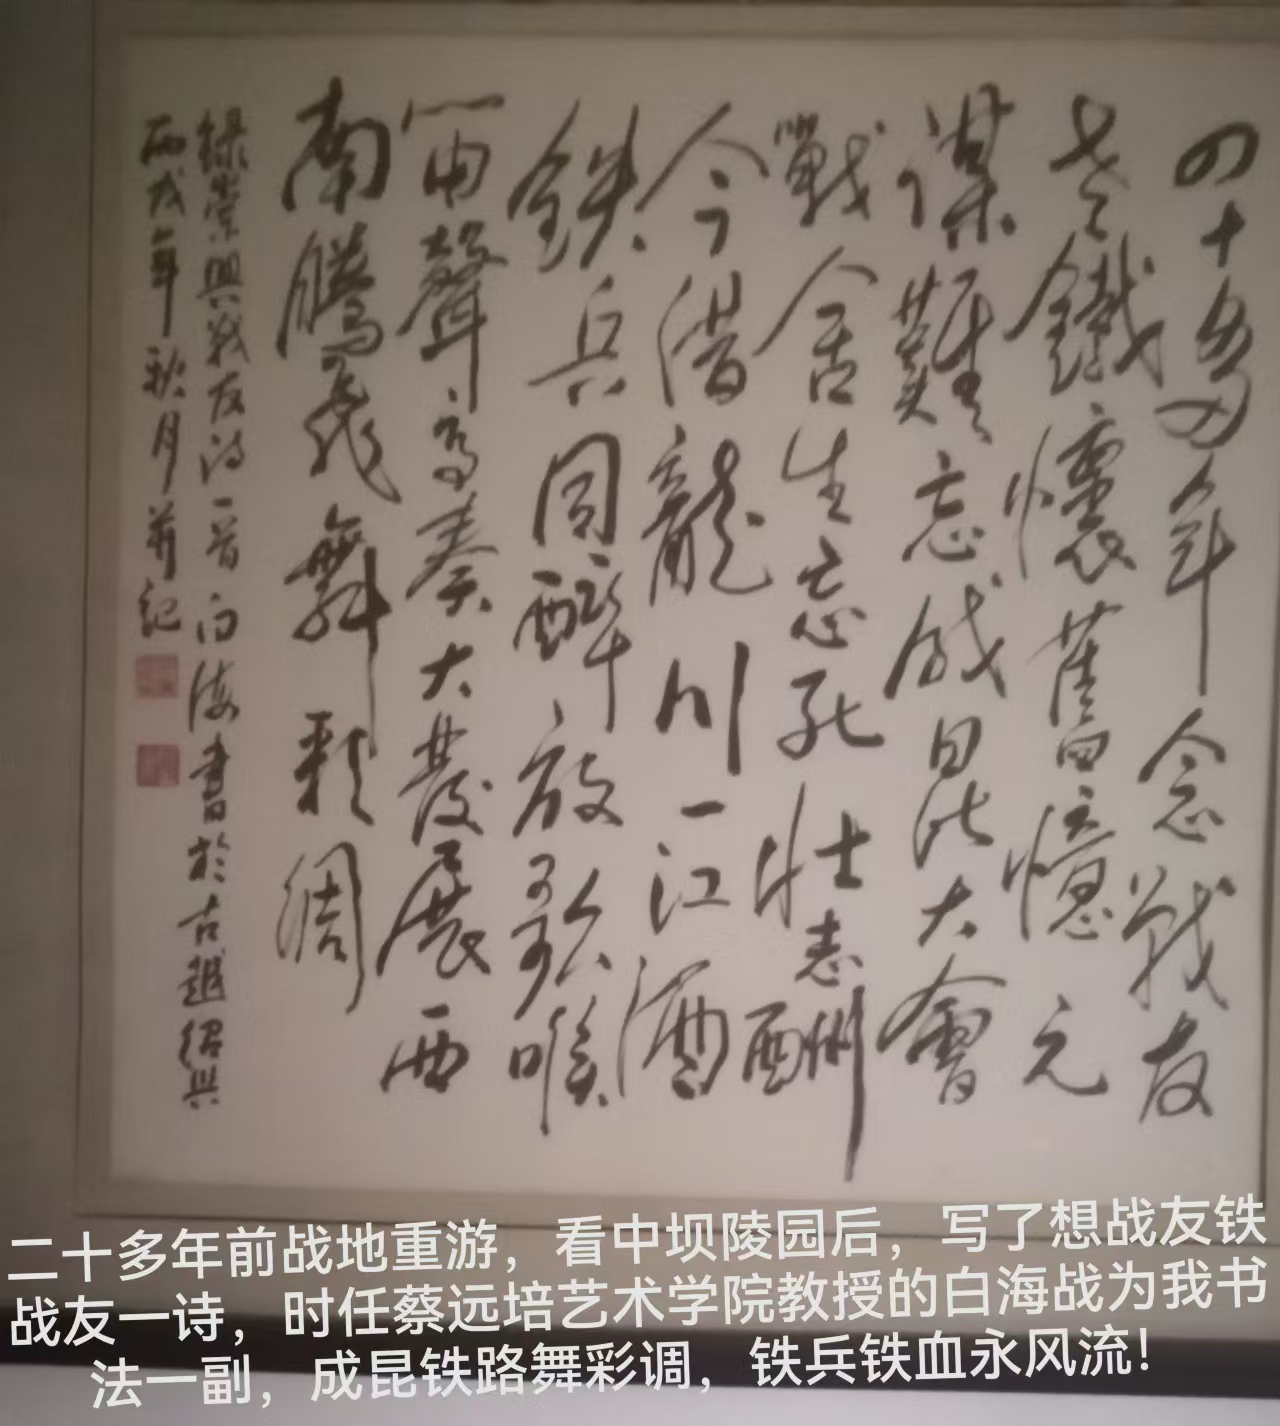 四十多年念戰友
老鐵懷舊回憶元
谋難忘成昆大會
戰舍生忘死壯志酬
今借龍川一江酒
鉄兵同醉放歌喉
笛聲高奏大發展西
南騰飛舞彩綢
録崇興戰友诗一首白海書於古越紹興
丙戌年秋月并記
二十多年前战地重游，看中坝陵园后，写了想战友铁
战友一诗，时任蔡远培艺术学院教授的白海战为我书
法一副，成昆铁路舞彩调，铁兵铁血永风流！